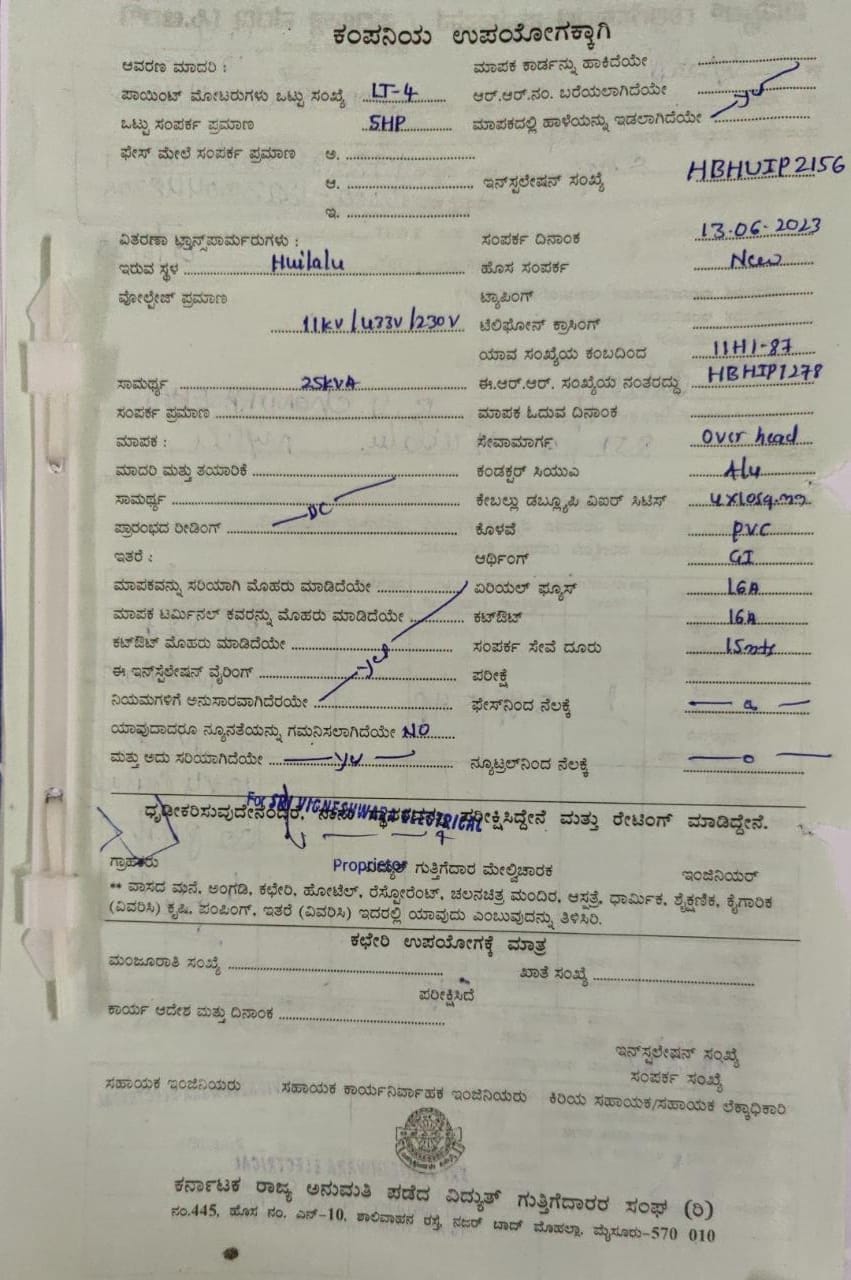 ಕಂಪನಿಯ ಉಪಯೋಗಕ್ಕಾಗಿ
ಆವರಣ ಮಾದರಿ : ಮಾಪಕ ಕಾರ್ಡನ್ನು ಹಾಕಿದೆಯೇ
ಪಾಯಿಂಟ್ ಮೋಟರುಗಳು ಒಟ್ಟು ಸಂಖ್ಯೆ LT-4 ಆರ್.ಆರ್.ನಂ. ಬರೆಯಲಾಗಿದೆಯೇ
ಒಟ್ಟು ಸಂಪರ್ಕ ಪ್ರಮಾಣ 5HP ಮಾಪಕದಲ್ಲಿ ಹಾಳೆಯನ್ನು ಇಡಲಾಗಿದೆಯೇ yes
ಫೇಸ್ ಮೇಲೆ ಸಂಪರ್ಕ ಪ್ರಮಾಣ ಅ.
ಆ. ಇನ್‌ಸ್ಟಲೇಷನ್ ಸಂಖ್ಯೆ HBHUIP2156
ಇ.
ವಿತರಣಾ ಟ್ರಾನ್ಸ್‌ಪಾರ್ಮರುಗಳು : ಸಂಪರ್ಕ ದಿನಾಂಕ 13.06.2023
ಇರುವ ಸ್ಥಳ Huilalu ಹೊಸ ಸಂಪರ್ಕ New
ವೋಲ್ಟೇಜ್ ಪ್ರಮಾಣ ಟ್ಯಾಪಿಂಗ್
11kV/433V/230V ಟೆಲಿಫೋನ್ ಕ್ರಾಸಿಂಗ್
ಯಾವ ಸಂಖ್ಯೆಯ ಕಂಬದಿಂದ 11H1-87
ಸಾಮರ್ಥ್ಯ 25kVA ಈ.ಆರ್.ಆರ್. ಸಂಖ್ಯೆಯ ನಂತರದ್ದು HBHIP1278
ಸಂಪರ್ಕ ಪ್ರಮಾಣ ಮಾಪಕ ಓದುವ ದಿನಾಂಕ
ಮಾಪಕ : ಸೇವಾಮಾರ್ಗ Over head
ಮಾದರಿ ಮತ್ತು ತಯಾರಿಕೆ ಕಂಡಕ್ಟರ್ ಸಿಯುಎ Alu
ಸಾಮರ್ಥ್ಯ ಕೇಬಲ್ಲು ಡಬ್ಲ್ಯೂಪಿ ವಿಐರ್ ಸಿಟಿಸ್ 4x10sq.mm
ಪ್ರಾರಂಭದ ರೀಡಿಂಗ್ DC ಕೊಳವೆ PVC
ಇತರೆ : ಆರ್ಥಿಂಗ್ GI
ಮಾಪಕವನ್ನು ಸರಿಯಾಗಿ ಮೊಹರು ಮಾಡಿದೆಯೇ ಏರಿಯಲ್ ಫ್ಯೂಸ್ 16A
ಮಾಪಕ ಟರ್ಮಿನಲ್ ಕವರನ್ನು ಮೊಹರು ಮಾಡಿದೆಯೇ ಕಟ್‌ಔಟ್ 16A
ಕಟ್‌ಔಟ್ ಮೊಹರು ಮಾಡಿದೆಯೇ ಸಂಪರ್ಕ ಸೇವೆ ದೂರು 15mts
ಈ ಇನ್‌ಸ್ಟೆಲೇಷನ್ ವೈರಿಂಗ್ yes ಪರೀಕ್ಷೆ
ನಿಯಮಗಳಿಗೆ ಅನುಸಾರವಾಗಿದೆರಯೇ ಫೇಸ್‌ನಿಂದ ನೆಲಕ್ಕೆ
ಯಾವುದಾದರೂ ನ್ಯೂನತೆಯನ್ನು ಗಮನಿಸಲಾಗಿದೆಯೇ NO
ಮತ್ತು ಅದು ಸರಿಯಾಗಿದೆಯೇ yes ನ್ಯೂಟ್ರಲ್‌ನಿಂದ ನೆಲಕ್ಕೆ
For SRI VIGNESHWARA ELECTRICAL
ಧೃಢೀಕರಿಸುವುದೇನೆಂದರೆ, ಪರೀಕ್ಷಿಸಿದ್ದೇನೆ ಮತ್ತು ರೇಟಿಂಗ್ ಮಾಡಿದ್ದೇನೆ.
ಗ್ರಾಹಕರು Proprietor ಗುತ್ತಿಗೆದಾರ ಮೇಲ್ವಿಚಾರಕ ಇಂಜಿನಿಯರ್
** ವಾಸದ ಮನೆ, ಅಂಗಡಿ, ಕಛೇರಿ, ಹೋಟೆಲ್, ರೆಸ್ಟೋರೆಂಟ್, ಚಲನಚಿತ್ರ ಮಂದಿರ, ಆಸ್ಪತ್ರೆ, ಧಾರ್ಮಿಕ, ಶೈಕ್ಷಣಿಕ, ಕೈಗಾರಿಕ
(ವಿವರಿಸಿ) ಕೃಷಿ, ಪಂಪಿಂಗ್, ಇತರೆ (ವಿವರಿಸಿ) ಇದರಲ್ಲಿ ಯಾವುದು ಎಂಬುವುದನ್ನು ತಿಳಿಸಿರಿ.
ಕಛೇರಿ ಉಪಯೋಗಕ್ಕೆ ಮಾತ್ರ
ಮಂಜೂರಾತಿ ಸಂಖ್ಯೆ ಖಾತೆ ಸಂಖ್ಯೆ
ಪರೀಕ್ಷಿಸಿದೆ
ಕಾರ್ಯ ಆದೇಶ ಮತ್ತು ದಿನಾಂಕ
ಇನ್‌ಸ್ಟಲೇಷನ್ ಸಂಖ್ಯೆ
ಸಂಪರ್ಕ ಸಂಖ್ಯೆ
ಸಹಾಯಕ ಇಂಜಿನಿಯರು ಸಹಾಯಕ ಕಾರ್ಯನಿರ್ವಾಹಕ ಇಂಜಿನಿಯರು ಕಿರಿಯ ಸಹಾಯಕ/ಸಹಾಯಕ ಲೆಕ್ಕಾಧಿಕಾರಿ
ಕರ್ನಾಟಕ ರಾಜ್ಯ ಅನುಮತಿ ಪಡೆದ ವಿದ್ಯುತ್ ಗುತ್ತಿಗೆದಾರರ ಸಂಘ (ರಿ)
ನಂ.445, ಹೊಸ ನಂ. ಎನ್-10, ಶಾಲಿವಾಹನ ರಸ್ತೆ, ನಜರ್ ಬಾದ್ ಮೊಹಲ್ಲಾ, ಮೈಸೂರು-570 010